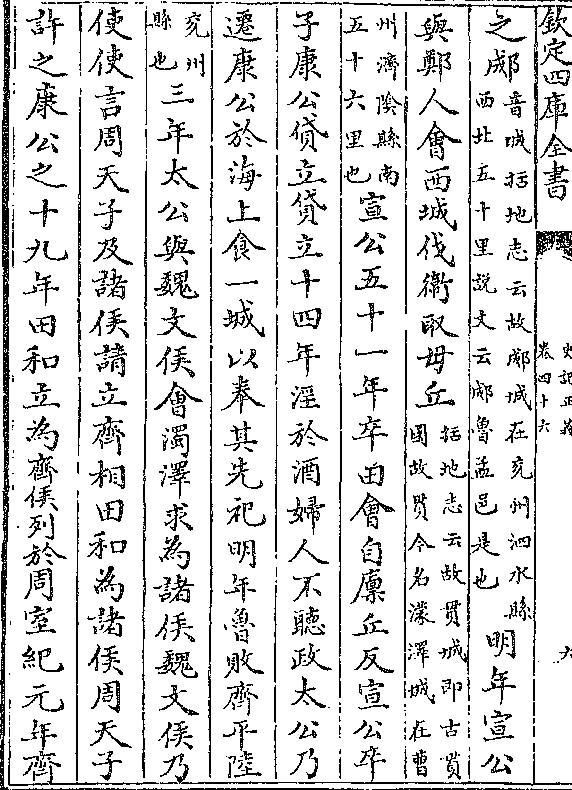 欽定四庫全書
史記正義
卷四十六
九
之郕音城括地志云故郕城在兖州泗水縣
西北五十里説文云郕魯孟邑是也明年宣公
與鄭人會西城伐衞取毋丘括地志云故貫城即古貫
國故貫今名濛澤城在曹
州濟隂縣南
五十六里也宣公五十一年卒田會自廪丘反宣公卒
子康公貸立貸立十四年淫於酒婦人不聽政太公乃
遷康公於海上食一城以奉其先祀明年魯敗齊平陸
兖州
縣也三年太公與魏文侯會濁澤求為諸侯魏文侯乃
使使言周天子及諸侯請立齊相田和為諸侯周天子
許之康公之十九年田和立為齊侯列於周室紀元年齊